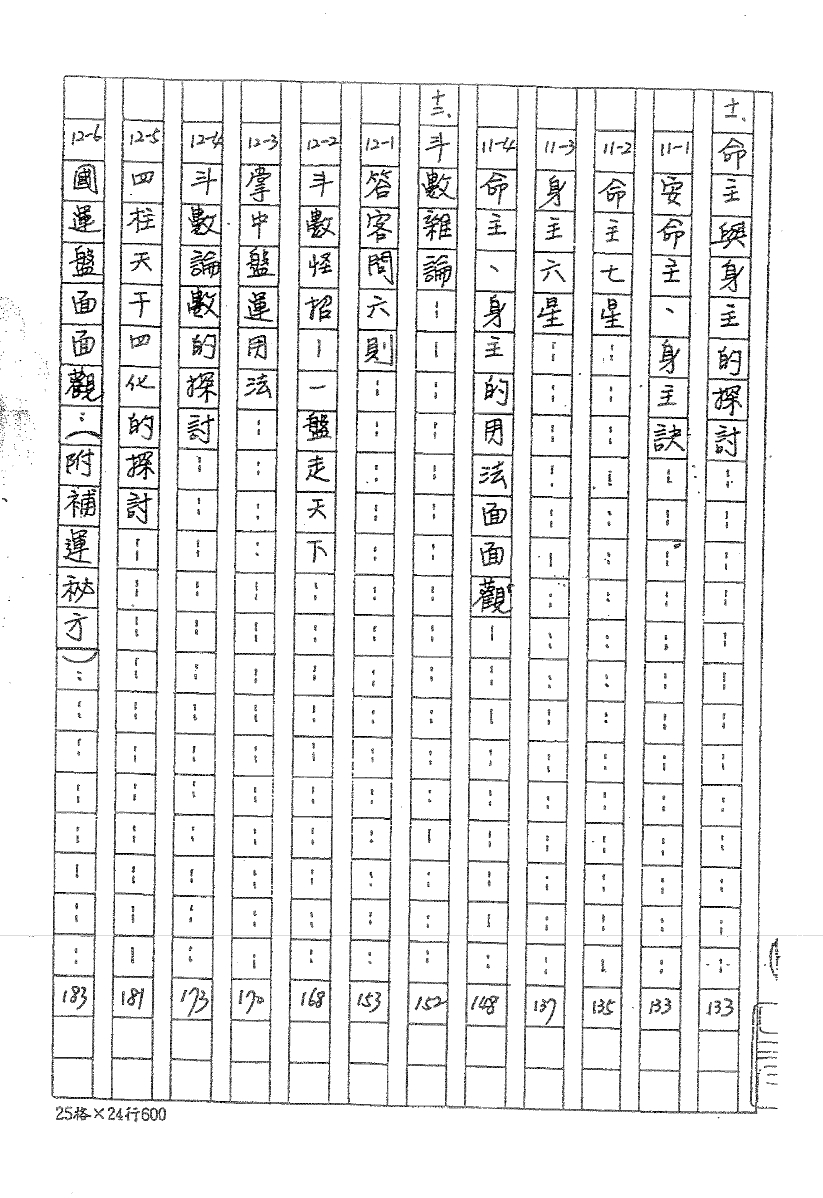 十一、命主與身主的探討……133
11-1安命主、身主訣……133
11-2命主七星……135
11-3身主六星……137
11-4命主、身主的用法面面觀……148
十二、斗數雜論……152
12-1答客問六則……153
12-2斗數怪招—一盤走天下……168
12-3掌中盤運用法……170
12-4斗數論數的探討……173
12-5四柱天干四化的探討……181
12-6國運盤面面觀：(附補運秘方)……183
25格×24行600